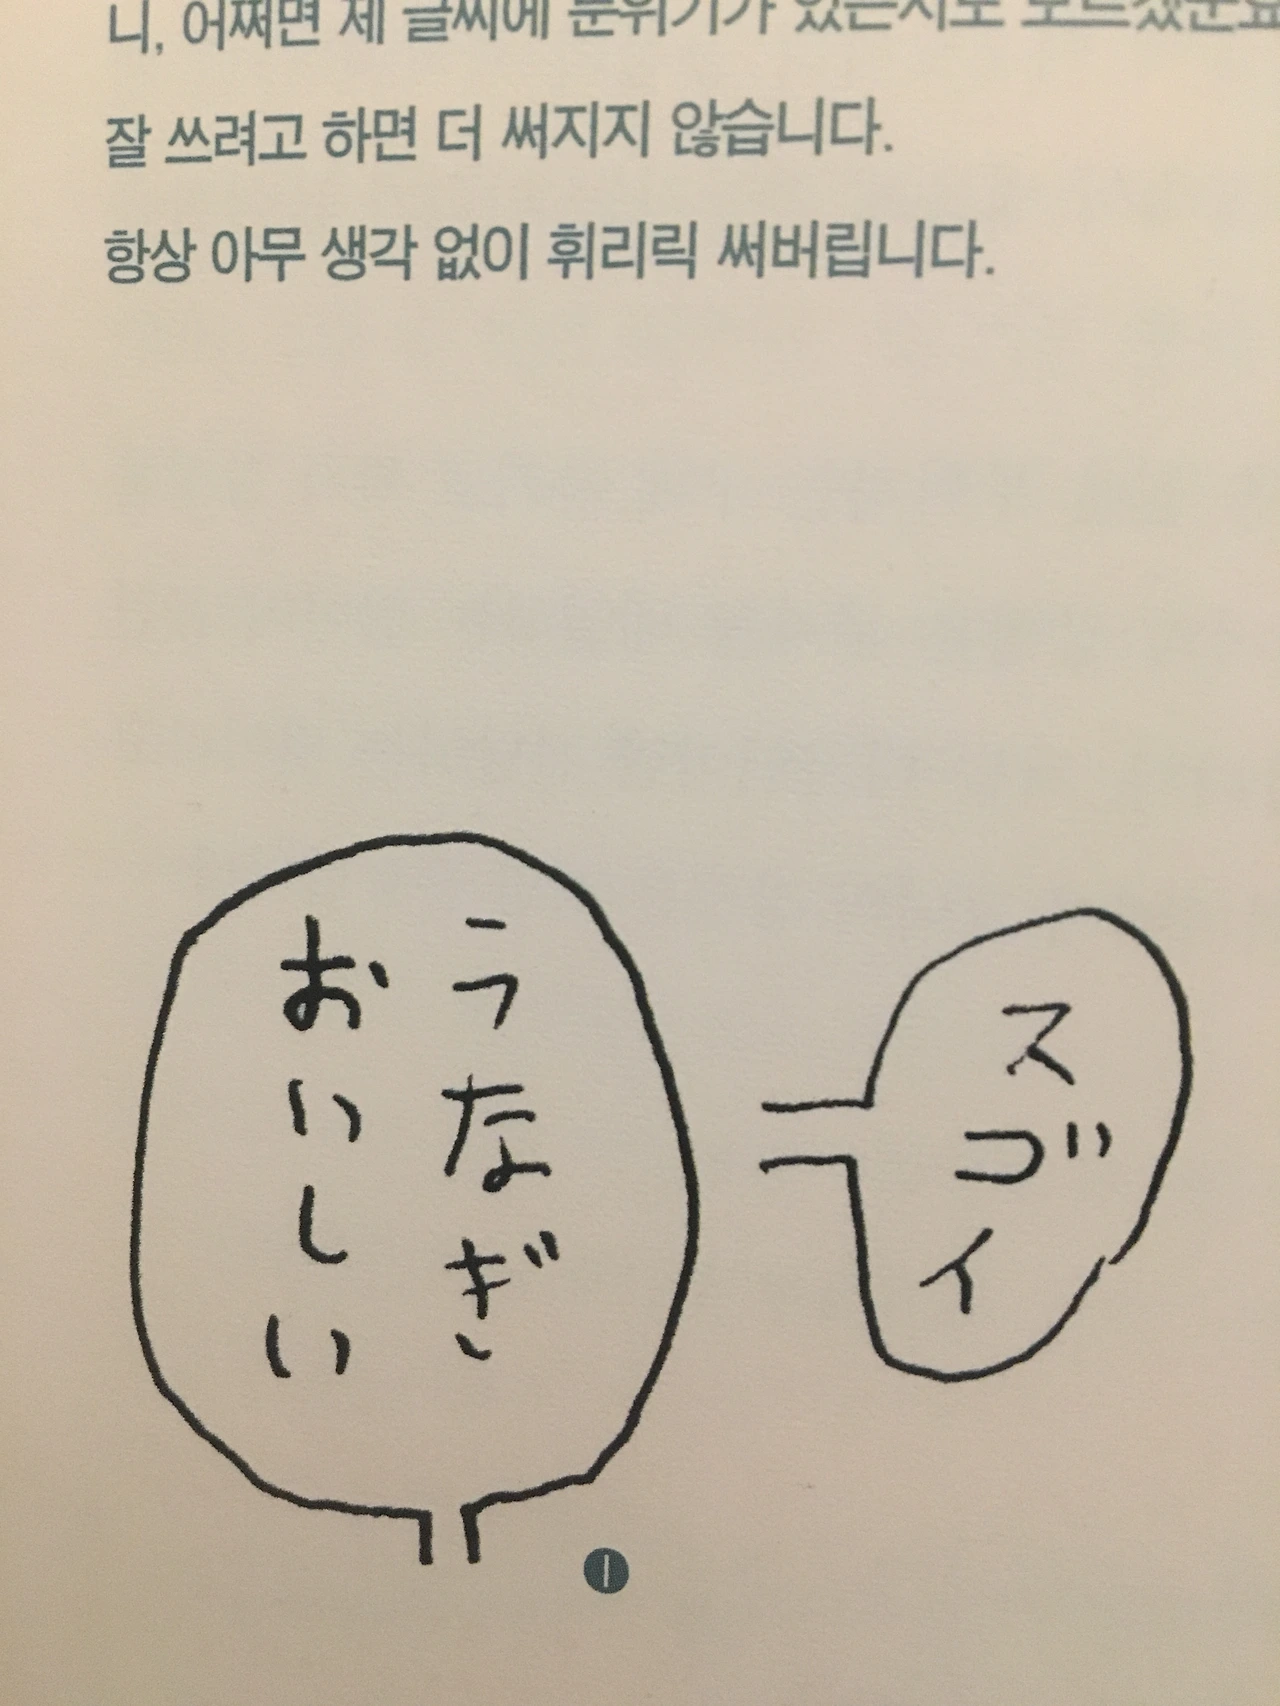 니, 어쩌면 제 글씨에 분위기가 있는지도 모르겠군요
잘 쓰려고 하면 더 써지지 않습니다.
항상 아무 생각 없이 휘리릭 써버립니다.
スゴイ
うなぎ
おいしい
1